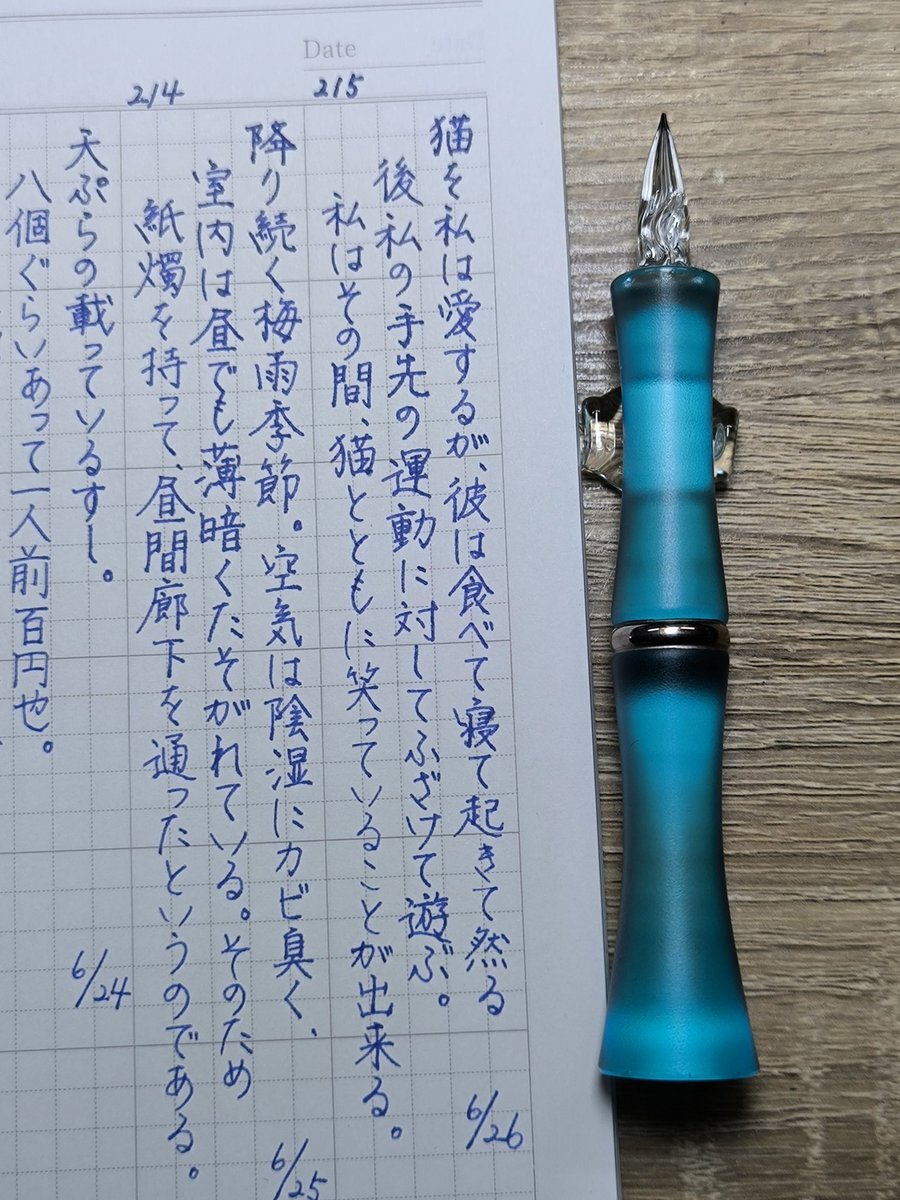 Date
215
猫を私は愛するが、彼は食べて寝て起きて然る
後私の手先の運動に対してふざけて遊ぶ。
私はその間、猫とともに笑っていることが出来る。
6/26
214
降り続く梅雨季節。空気は陰湿にカビ臭く、
室内は昼でも薄暗くたそがれている。そのため
紙燭を持って、昼間廊下を通ったというのである。
6/25
天ぷらの載っているすし。
八個ぐらいあって一人前百円也。
6/24